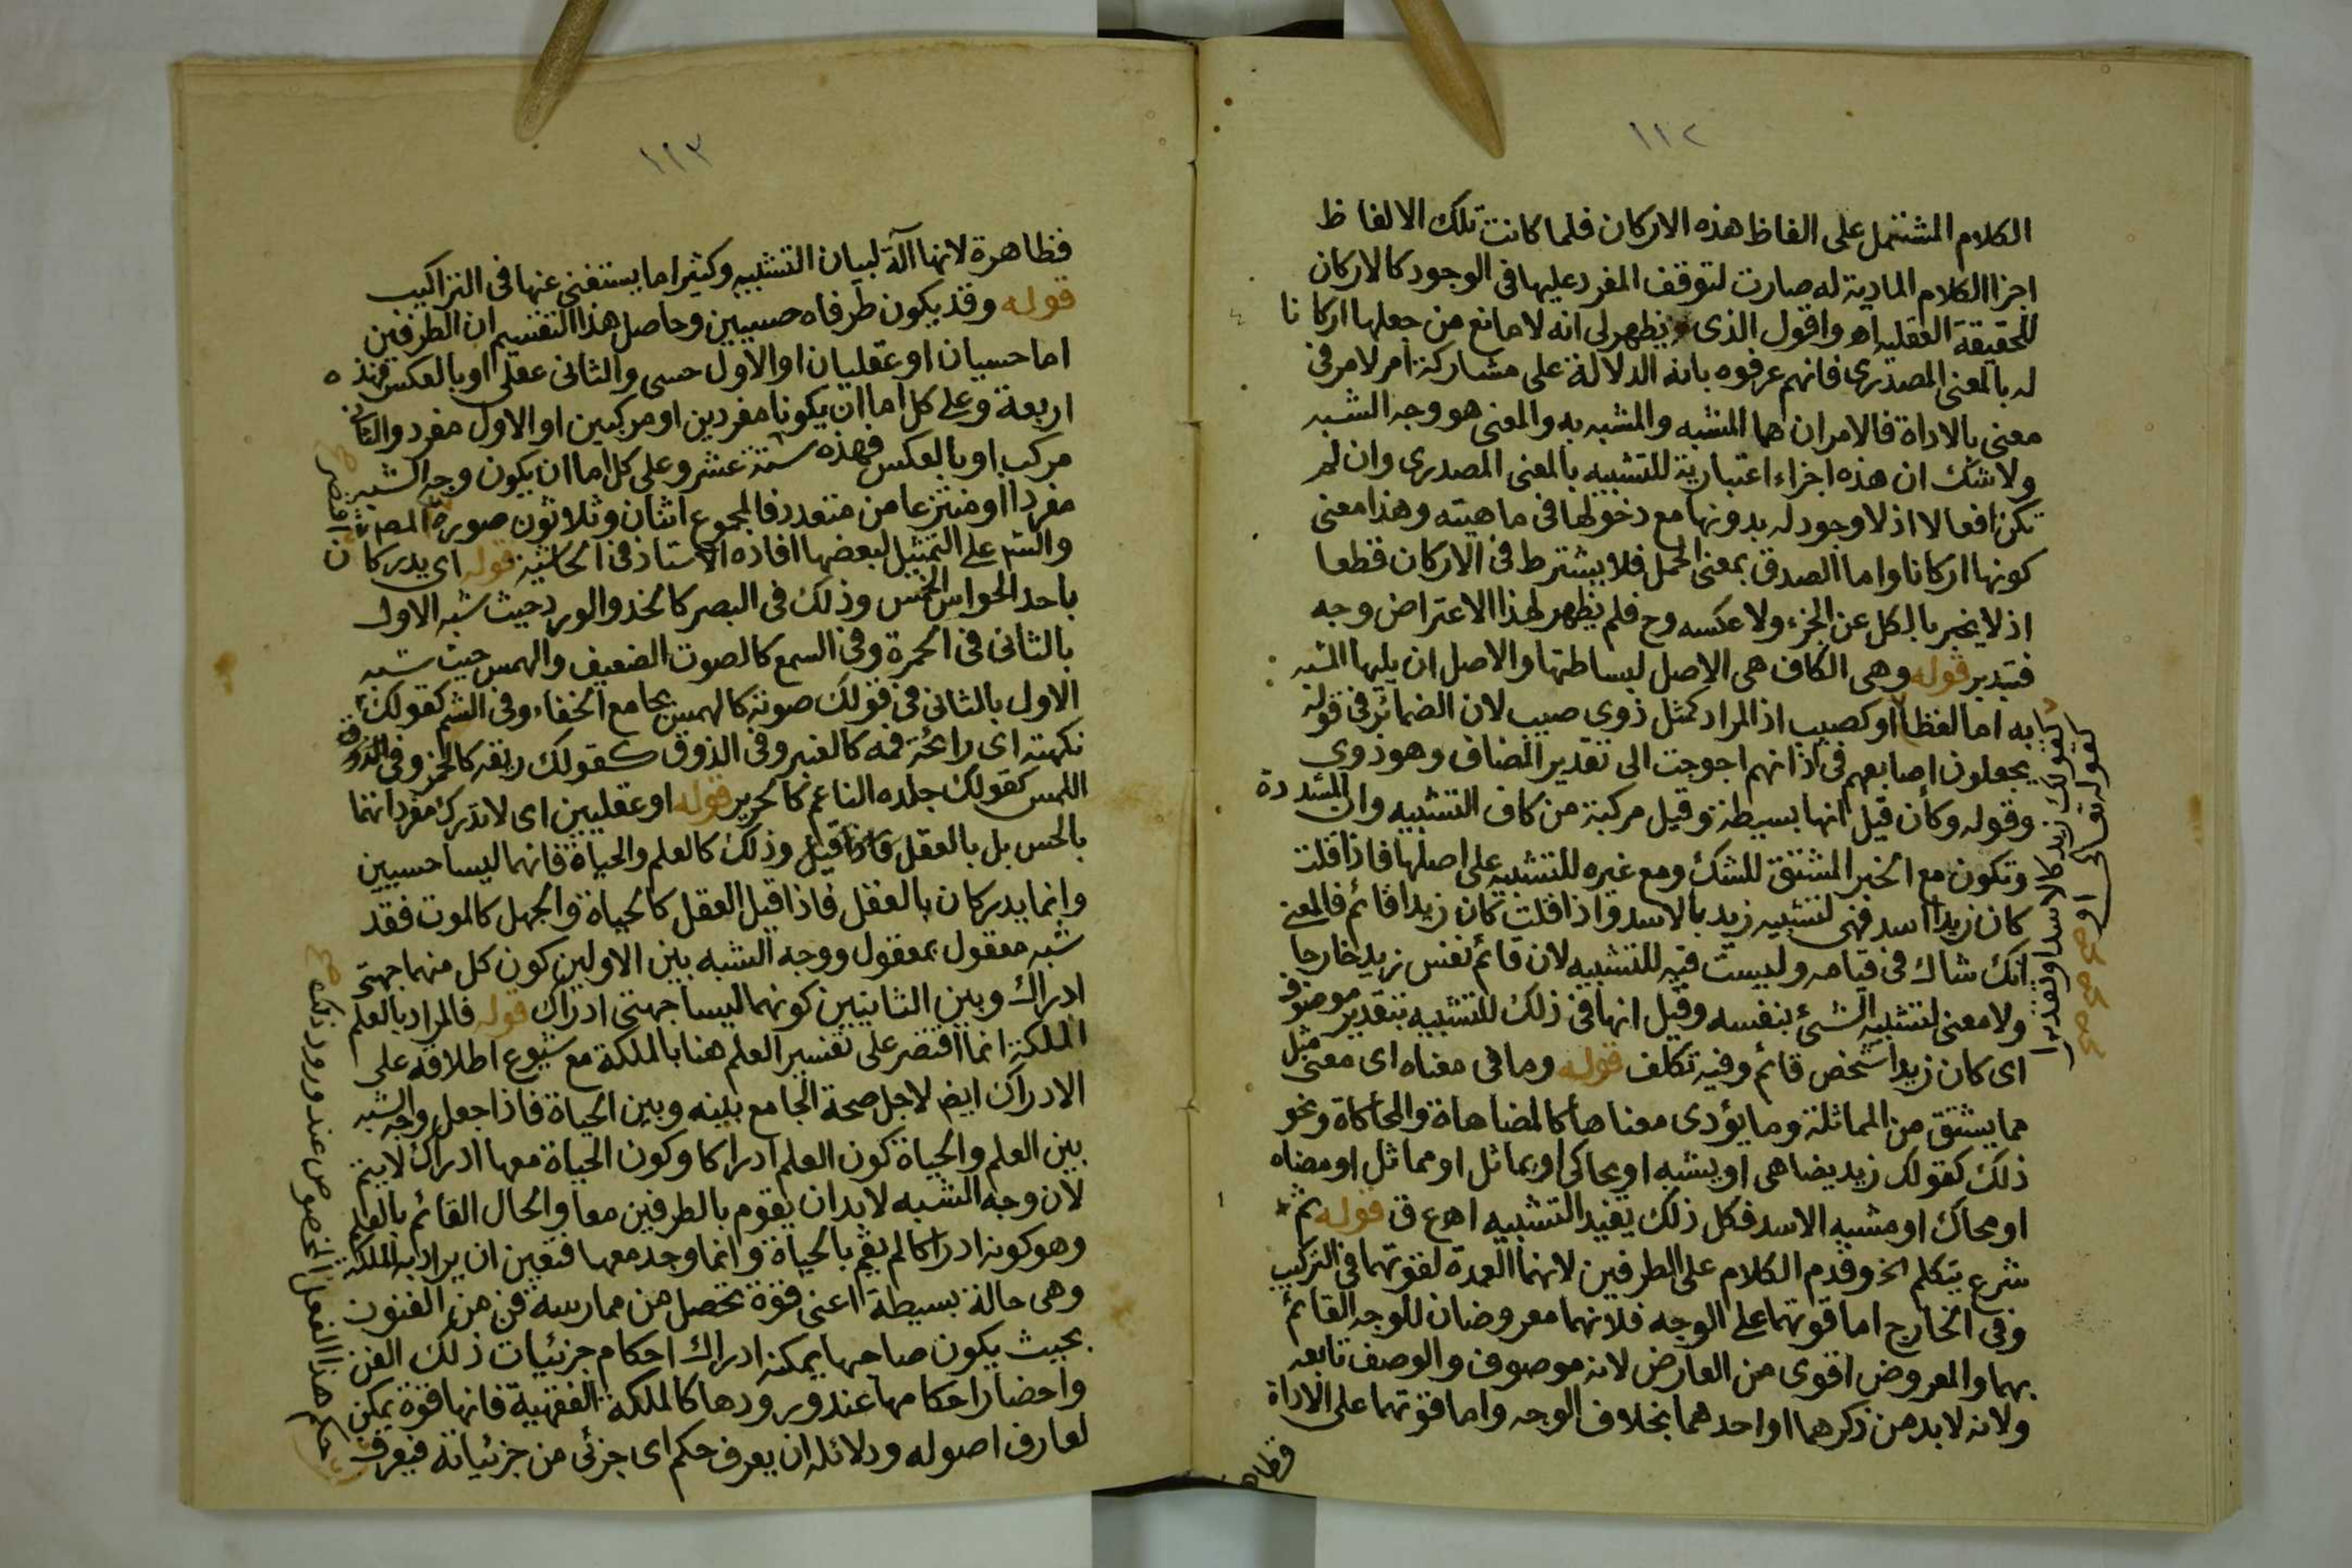 ١١٢
الكلام المشتمل على الفاظ هذه الاركان فلما كانت تلك الالفاظ
اجزا الكلام المادية له صارت لتوقف المفرد عليها فى الوجود كالاركان
للحقيقة العقلية اه واقول الذى يظهر لى انه لا مانع من جعلها اركانا
له بالمعنى المصدرى فانهم عرفوه بانه الدلالة على مشاركة امر لامر فى
معنى بالاداة فالامران هما المشبه والمشبه به والمعنى هو وجه الشبه
ولا شك ان هذه اجزاء اعتبارية للتشبيه بالمعنى المصدرى وان لم
تكن افعالا اذ لا وجود له بدونها مع دخولها فى ماهيته وهذا معنى
كونها اركانا واما الصدق بمعنى الحمل فلا يشترط فى الاركان قطعا
اذ لا يخبر بالكل عن الجزء ولا عكسه وح فلم يظهر لهذا الاعتراض وجه
فتدبر قوله وهى الكاف هى الاصل لبساطتها والاصل ان يليها المشبه
به اما لفظا او كصيب اذ المراد كمثل ذوى صيب لان الضمائر فى قوله
يجعلون اصابعهم فى اذانهم احوجت الى تقدير المضاف وهو ذوى
وقوله وكأن قيل انها بسيطة وقيل مركبة من كاف التشبيه وان المشددة
وتكون مع الخبر المشتق للشك ومع غيره للتشبيه على اصلها فاذا قلت
كان زيدا اسد فهى لتشبيه زيد بالاسد واذا قلت كان زيدا قائم فالمعنى
انك شاك فى قيامه وليست فيه للتشبيه لان قائم نفس زيد خارجا
ولا معنى لتشبيه الشئ بنفسه وقيل انها فى ذلك للتشبيه بتقدير موصوف
اى كان زيدا شخص قائم وفيه تكلف قوله وما فى معناه اى معنى مثل
مما يشتق من المماثلة وما يؤدى معناها كالمضاهاة والمحاكاة ونحو
ذلك كقولك زيد يضاهى او يشبه او يحاكى او يماثل او مماثل او مضاه
او محاك او مشبه الاسد فكل ذلك يفيد التشبيه اهع ق قوله ثم
شرع يتكلم الخ وقدم الكلام على الطرفين لانهما العمدة لقوتهما فى التركيب
وفى الخارج اما قوتهما على الوجه فلانهما معروضان للوجه القائم
بهما والمعروض اقوى من العارض لانه موصوف والوصف تابعه
ولانه لا بد من ذكرهما او احدهما بخلاف الوجه واما قوتهما على الاداة
فظاه
كقولك زيد كالاسد او تقديرا
كقوله تعالى او
صح صح صح
١١٣
فظاهرة لانها آلة لبيان التشبيه وكثيرا ما يستغنى عنها فى التراكيب
قوله وقد يكون طرفاه حسيين وحاصل هذا التقسيم ان الطرفين
اما حسيان او عقليان او الاول حسى والثانى عقلى او بالعكس فهذه
اربعة وعلى كل اما ان يكونا مفردين او مركبين او الاول مفرد والثانى
مركب او بالعكس فهذه ستة عشر وعلى كل اما ان يكون وجه الشبه
مفردا او منتزعا من متعدد فالمجموع اثنان وثلاثون صورة المصـ
والشـ على التمثيل لبعضها افاده الاستاذ فى الحاشية قوله اى يدركان
باحد الحواس الخمس وذلك فى البصر كالخد والورد حيث شبه الاول
بالثانى فى الحمرة وفى السمع كالصوت الضعيف والهمس حيث شبه
الاول بالثانى فى قولك صوته كالهمس بجامع الخفاء وفى الشم كقولك
نكهته اى رائحة فمه كالعنبر وفى الذوق كقولك ريقه كالخمر وفى
اللمس كقولك جلده الناعم كالحرير قوله او عقليين اى لا تدرك مفرداتهما
بالحس بل بالعقل وذلك كالعلم والحياة فانهما ليسا حسيين
وانما يدركان بالعقل فاذا قيل العقل كالحياة والجهل كالموت فقد
شبه معقول بمعقول ووجه الشبه بين الاولين كون كل منهما جهتى
ادراك وبين الثانيين كونهما ليسا جهتى ادراك قوله فالمراد بالعلم
الملكة انما اقتصر على تفسير العلم هنا بالملكة مع شيوع اطلاقه على
الادراك ايض لاجل صحة الجامع بينه وبين الحياة فاذا جعل وجه الشبه
بين العلم والحياة كون العلم ادراكا وكون الحياة معها ادراك لا يتم
لان وجه الشبه لا بد ان يقوم بالطرفين معا والحال القائم بالعلم
وهو كونه ادراكا لم يقم بالحياة وانما وجد معها فتعين ان يراد به الملكة
وهى حالة بسيطة اعنى قوة تحصل من ممارسة فن من الفنون
بحيث يكون صاحبها يمكنه ادراك احكام جزئيات ذلك الفن
واحضار احكامها عند ورودها كالملكة الفقهية فانها قوة يمكن
لعارف اصوله ودلائله ان يعرف حكم اى جزئى من جزئياته فيعرف
اقتصر صح
حكم هذا الفعل الخصوص عند ورود ذلك صح